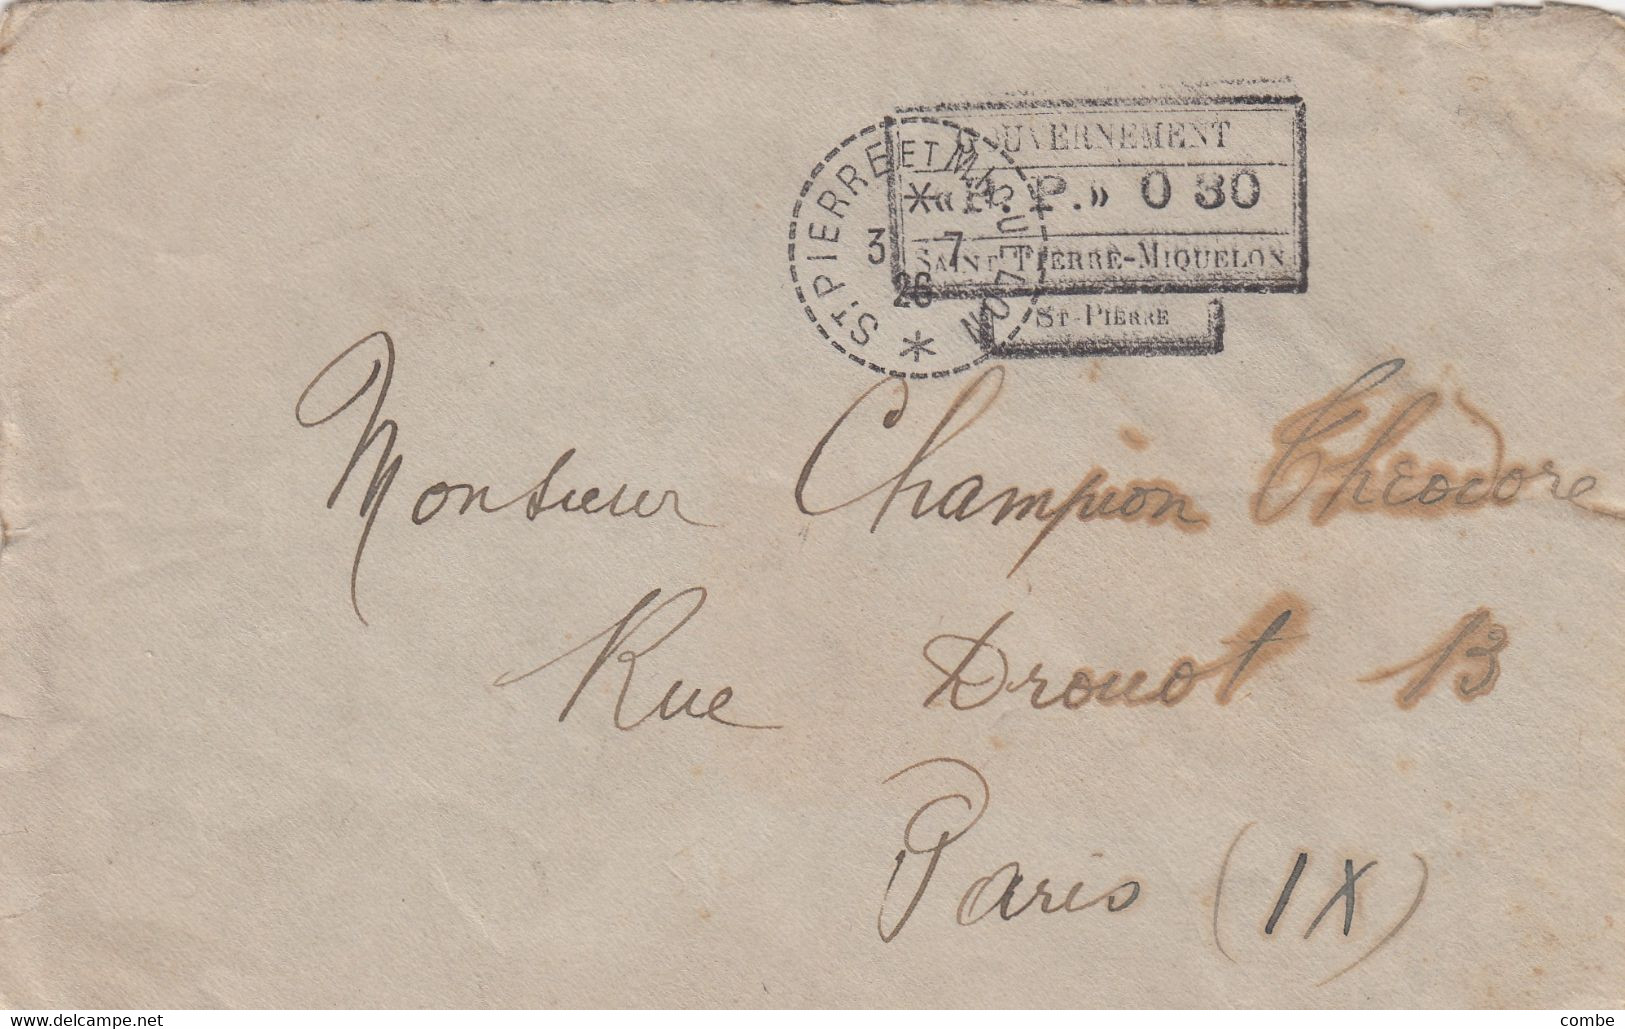 GOUVERNEMENT
«P. P.» 0 30
SAINT-PIERRE-MIQUELON
ST-PIERRE
ST. PIERRE ET MIQUELON
3 7
26
Monsieur Champion Théodore
Rue Drouot 13
Paris (IX)
www.delcampe.net
combe